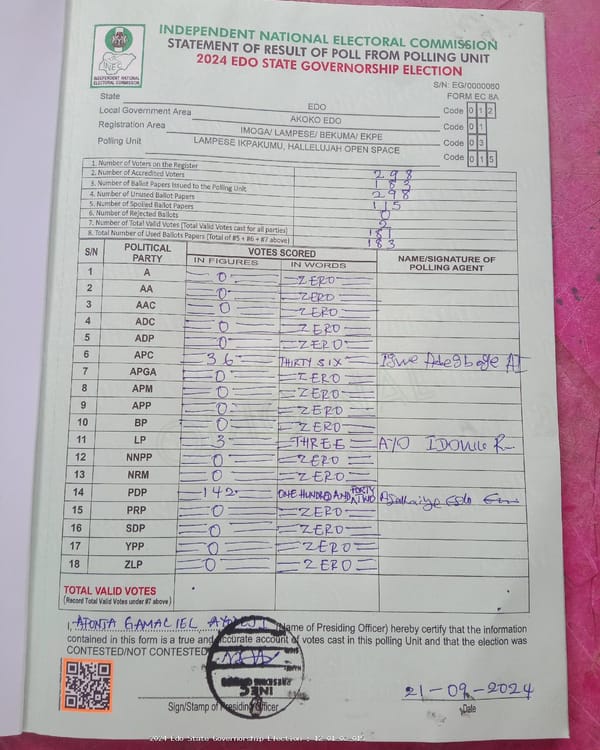 INDEPENDENT NATIONAL ELECTORAL COMMISSION
STATEMENT OF RESULT OF POLL FROM POLLING UNIT
2024 EDO STATE GOVERNORSHIP ELECTION
INEC
INDEPENDENT NATIONAL
ELECTORAL COMMISSION
S/N: EG/0000060
FORM EC 8A
State EDO Code 0 1 2
Local Government Area AKOKO EDO Code 0 1
Registration Area IMOGA/ LAMPESE/ BEKUMA/ EKPE Code 0 3
Polling Unit LAMPESE IKPAKUMU, HALLELUJAH OPEN SPACE Code 0 1 5
1. Number of Voters on the Register 298
2. Number of Accredited Voters 183
3. Number of Ballot Papers Issued to the Polling Unit 298
4. Number of Unused Ballot Papers 115
5. Number of Spoiled Ballot Papers 0
6. Number of Rejected Ballots 2
7. Number of Total Valid Votes (Total Valid Votes cast for all parties) 181
8. Total Number of Used Ballots Papers (Total of #5 + #6 + #7 above) 183
S/N POLITICAL PARTY VOTES SCORED NAME/SIGNATURE OF POLLING AGENT
IN FIGURES IN WORDS
1 A 0 ZERO
2 AA 0 ZERO
3 AAC 0 ZERO
4 ADC 0 ZERO
5 ADP 0 ZERO
6 APC 36 THIRTY SIX
7 APGA 0 ZERO
8 APM 0 ZERO
9 APP 0 ZERO
10 BP 0 ZERO
11 LP 3 THREE AYO
12 NNPP 0 ZERO
13 NRM 0 ZERO
14 PDP 142 ONE HUNDRED AND FORTY TWO
15 PRP 0 ZERO
16 SDP 0 ZERO
17 YPP 0 ZERO
18 ZLP 0 ZERO
TOTAL VALID VOTES
(Record Total Valid Votes under #7 above)
I, GAMALIEL (Name of Presiding Officer) hereby certify that the information
contained in this form is a true and accurate account of votes cast in this polling Unit and that the election was
CONTESTED/NOT CONTESTED
INEC
21-09-2024
Sign/Stamp of Presiding Officer Date
2024 Edo State Governorship Election